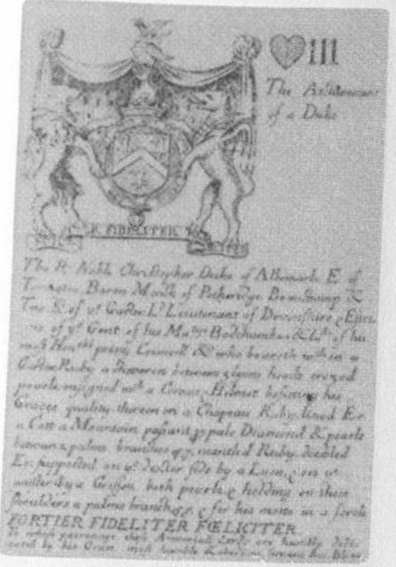 III
The Atchievment
of a Duke
FIDELITER
The Rt Noble Christopher Duke of Albemarle E of
Baron Monck of Potheridge Beauchamp &
Knt of ye Garter Ld Lieutenant of Devonshire & Essex
one of ye Gent of his Matys Bedchamber & Lds of his
most Honble privy Councell &c who beareth wthin a
Garter Ruby a Cheveron between 3 Lyons heads erazed
pearle ensigned wth a Coronet & Helmet befitting his
Graces quality thereon on a Chapeau Ruby lined Er
a Catt a Mountain passant p pale Diamond & pearle
between 2 palme branches mantled Ruby doubled
Er. supported on ye dexter side by a Lyon, on ye
sinister by a Griffon both pearle & holding on their
shoulders a palme branch & for his motto in a scrole
FORTIER FIDELITER FŒLICITER
To whose patronage these Armorial Cards are humbly dedi-
cated by his Graces most humble &